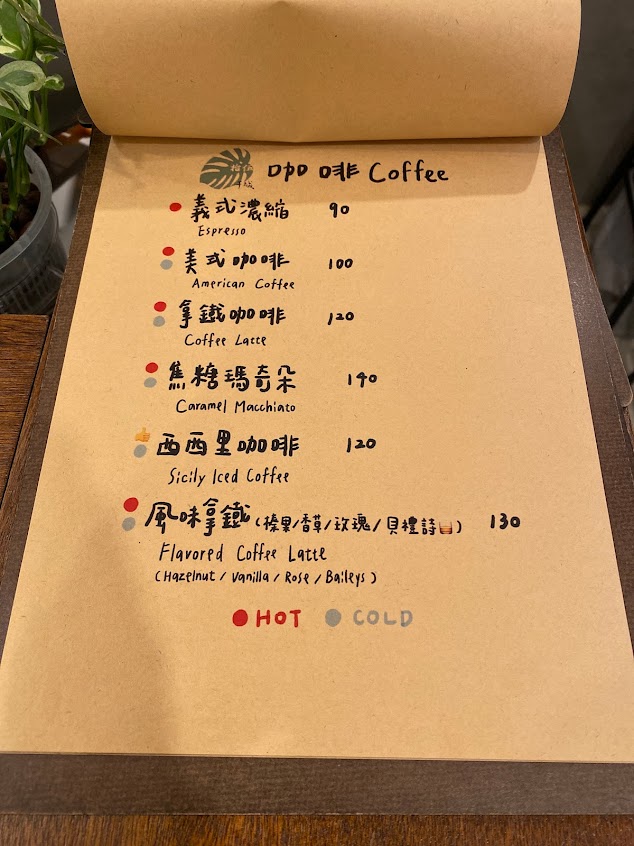 咖啡 Coffee
義式濃縮 90
Espresso
美式咖啡 100
American Coffee
拿鐵咖啡 120
Coffee Latte
焦糖瑪奇朵 140
Caramel Macchiato
西西里咖啡 120
Sicily Iced Coffee
風味拿鐵(榛果/香草/玫瑰/貝禮詩) 130
Flavored Coffee Latte
(Hazelnut / Vanilla / Rose / Baileys)
HOT COLD